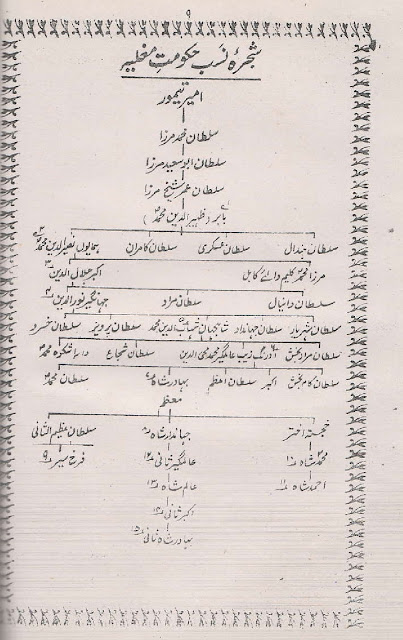 ۹
شجرۂ نسب حکومتِ مغلیہ
امیر تیمور
سلطان محمد مرزا
سلطان ابوسعید مرزا
سلطان عمر شیخ مرزا
بابر (ظہیر الدین محمد)
ہمایوں نصیر الدین محمد ۲ سلطان کامران سلطان عسکری سلطان ہندال
اکبر جلال الدین ۳ مرزا محمد حکیم والئے کابل
جہانگیر نور الدین ۴ سلطان مراد سلطان دانیال
سلطان خسرو سلطان پرویز شاہجہاں شہاب الدین محمد سلطان جہاندار سلطان شہریار
داراشکوہ محمد سلطان شجاع اورنگ زیب عالمگیر محمد محی الدین سلطان مراد بخش
سلطان محمد بہادر شاہ سلطان اعظم اکبر سلطان کام بخش
معظم
سلطان عظیم الثانی جہاندار شاہ ۸ خجستہ اختر
فرخ سیر ۹ عالمگیر ثانی ۱۲ محمد شاہ ۱۰
عالم شاہ ۱۳ احمد شاہ ۱۱
اکبر ثانی ۱۴
بہادر شاہ ثانی ۱۵